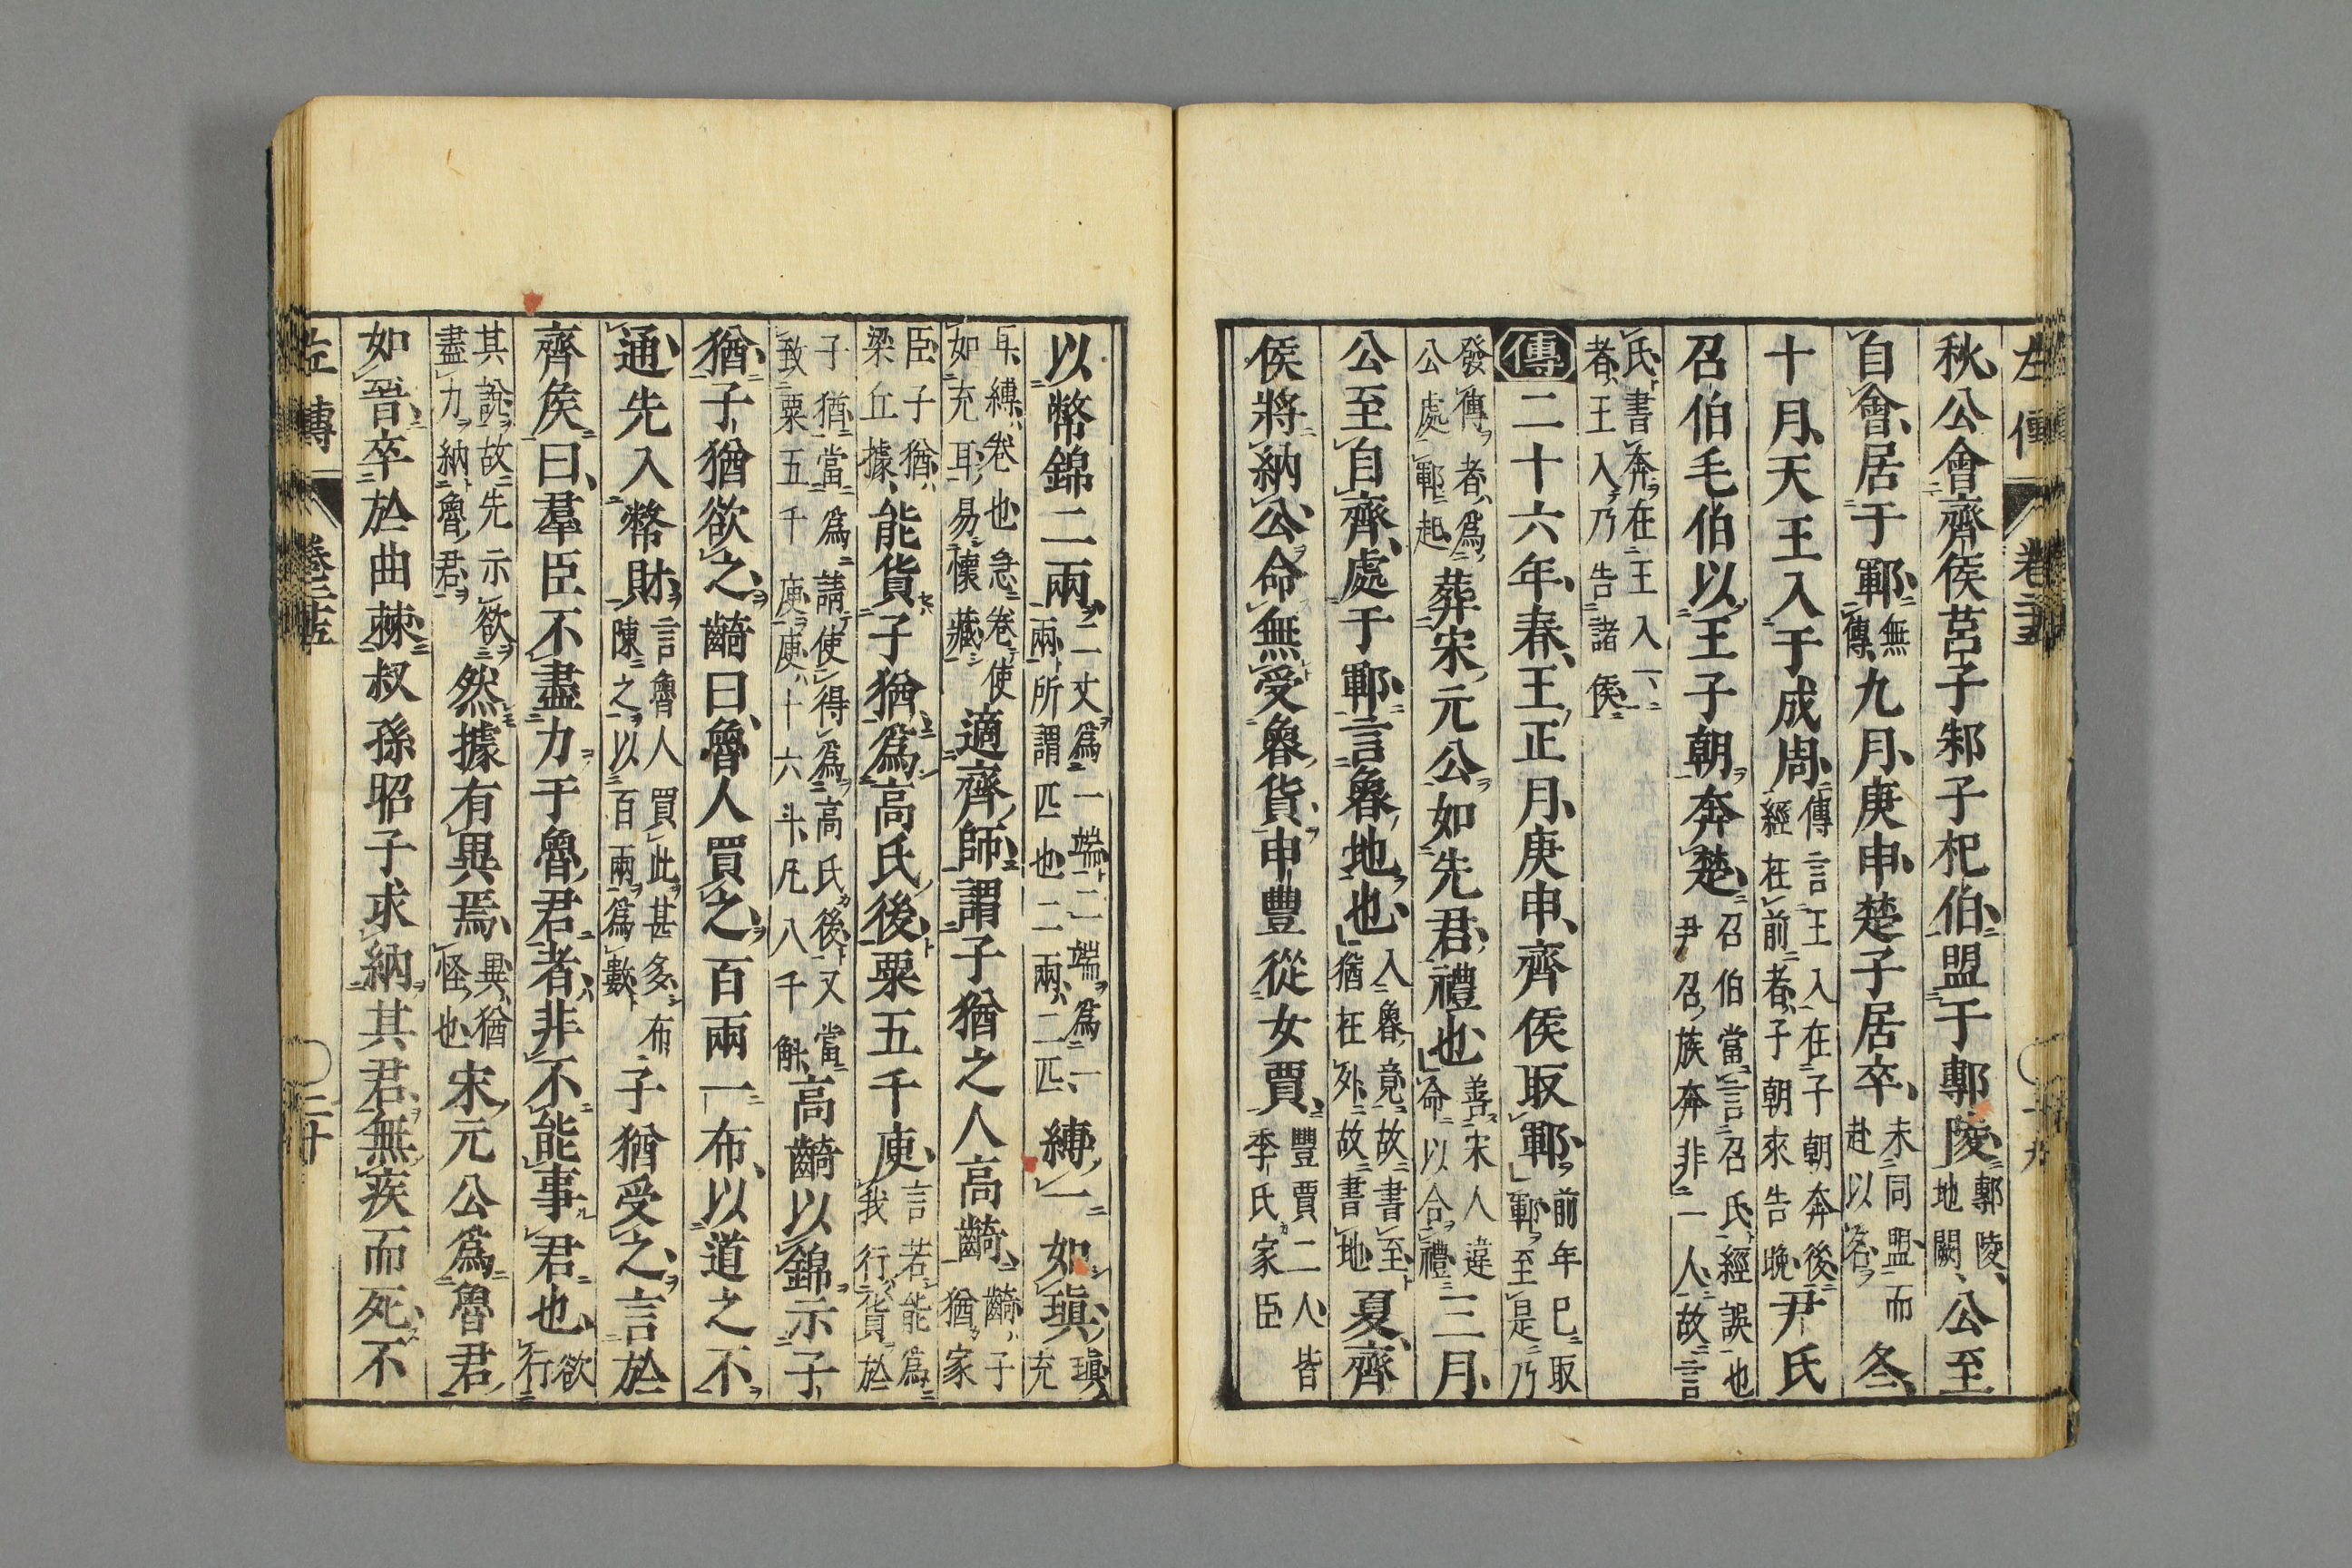 左傳 卷二十五 十九
秋公會齊侯莒子邾子杞伯盟于鄟陵鄟陵地闕公至
自會居于鄆無傳九月庚申楚子居卒未同盟而赴以名冬
十月天王入于成周傳言王入在子朝奔後經在前者子朝來告晚尹氏
召伯毛伯以王子朝奔楚召伯當言召氏經誤也尹召族奔非一人故言
氏書奔在王入下者王入乃告諸侯
傳二十六年春王正月庚申齊侯取鄆前年已取鄆至是乃
發傳者爲公處鄆起葬宋元公如先君禮也善宋人違命以合禮三月
公至自齊處于鄆言魯地也入魯竟故書至猶在外故書地夏齊
侯將納公命無受魯貨申豐從女賈豐賈二人皆季氏家臣
以幣錦二兩二丈爲一端二端爲一兩所謂匹也二兩二匹縛一如瑱瑱充
耳縛卷也急卷使如充耳易懷藏適齊師謂子猶之人高齮齮子猶家
臣子猶梁丘據能貨子猶爲高氏後粟五千庾言若能爲我行貨於
子猶當爲請使得爲高氏後又當致粟五千庾庾十六斗凡八千斛高齮以錦示子
猶子猶欲之齮曰魯人買之百兩一布以道之不
通先入幣財言魯人買此甚多布陳之以百兩爲數子猶受之言於
齊侯曰羣臣不盡力于魯君者非不能事君也欲行
其說故先示欲盡力納魯君然據有異焉異猶怪也宋元公爲魯君
如晉卒於曲棘叔孫昭子求納其君無疾而死不
左傳 卷二十五 二十